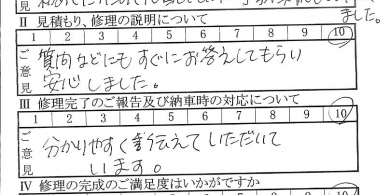 ました。
II 見積もり、修理の説明について
1 2 3 4 5 6 7 8 9 10
ご意見
質問などにもすぐにお答えしてもらい
安心しました。
III 修理完了のご報告及び納車時の対応について
1 2 3 4 5 6 7 8 9 10
ご意見
分かりやすく伝えていただいて
います。
IV 修理の完成のご満足度はいかがですか